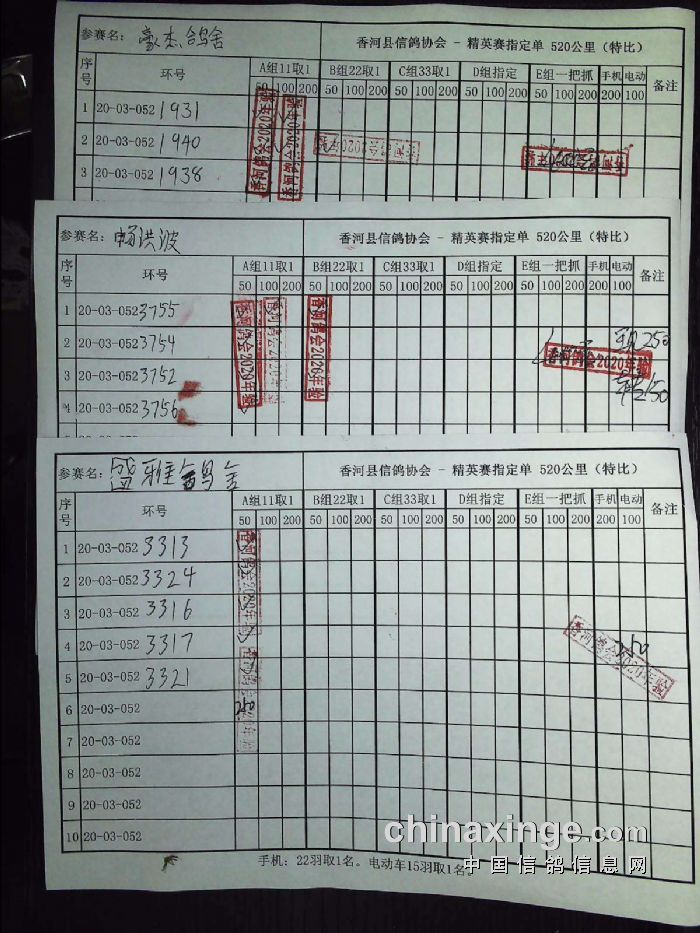 参赛名：豪杰鸽舍 香河县信鸽协会 - 精英赛指定单 520公里（特比）
序号 环号 A组11取1 B组22取1 C组33取1 D组指定 E组一把抓 手机 电动 备注
50 100 200 50 100 200 50 100 200 50 100 200 50 100 200 200 100
1 20-03-052 1931
2 20-03-052 1940
3 20-03-052 1938
香河鸽会2020年验
香河鸽会2020年验
香河鸽会2020年验
香河鸽会2020年验
参赛名：畅洪波 香河县信鸽协会 - 精英赛指定单 520公里（特比）
序号 环号 A组11取1 B组22取1 C组33取1 D组指定 E组一把抓 手机 电动 备注
50 100 200 50 100 200 50 100 200 50 100 200 50 100 200 200 100
1 20-03-052 3755
2 20-03-052 3754
3 20-03-052 3752
4 20-03-052 3756
香河鸽会2020年验
香河鸽会2020年验
香河鸽会2020年验
香河鸽会2020年验
250
150
参赛名：盛雅鸽舍 香河县信鸽协会 - 精英赛指定单 520公里（特比）
序号 环号 A组11取1 B组22取1 C组33取1 D组指定 E组一把抓 手机 电动 备注
50 100 200 50 100 200 50 100 200 50 100 200 50 100 200 200 100
1 20-03-052 3313
2 20-03-052 3324
3 20-03-052 3316
4 20-03-052 3317
5 20-03-052 3321
6 20-03-052 250
7 20-03-052
8 20-03-052
9 20-03-052
10 20-03-052
香河鸽会2020年验
香河鸽会2020年验
250
香河鸽会2020年验
手机：22羽取1名。电动车15羽取1名。
chinaxinge.com
中国信鸽信息网